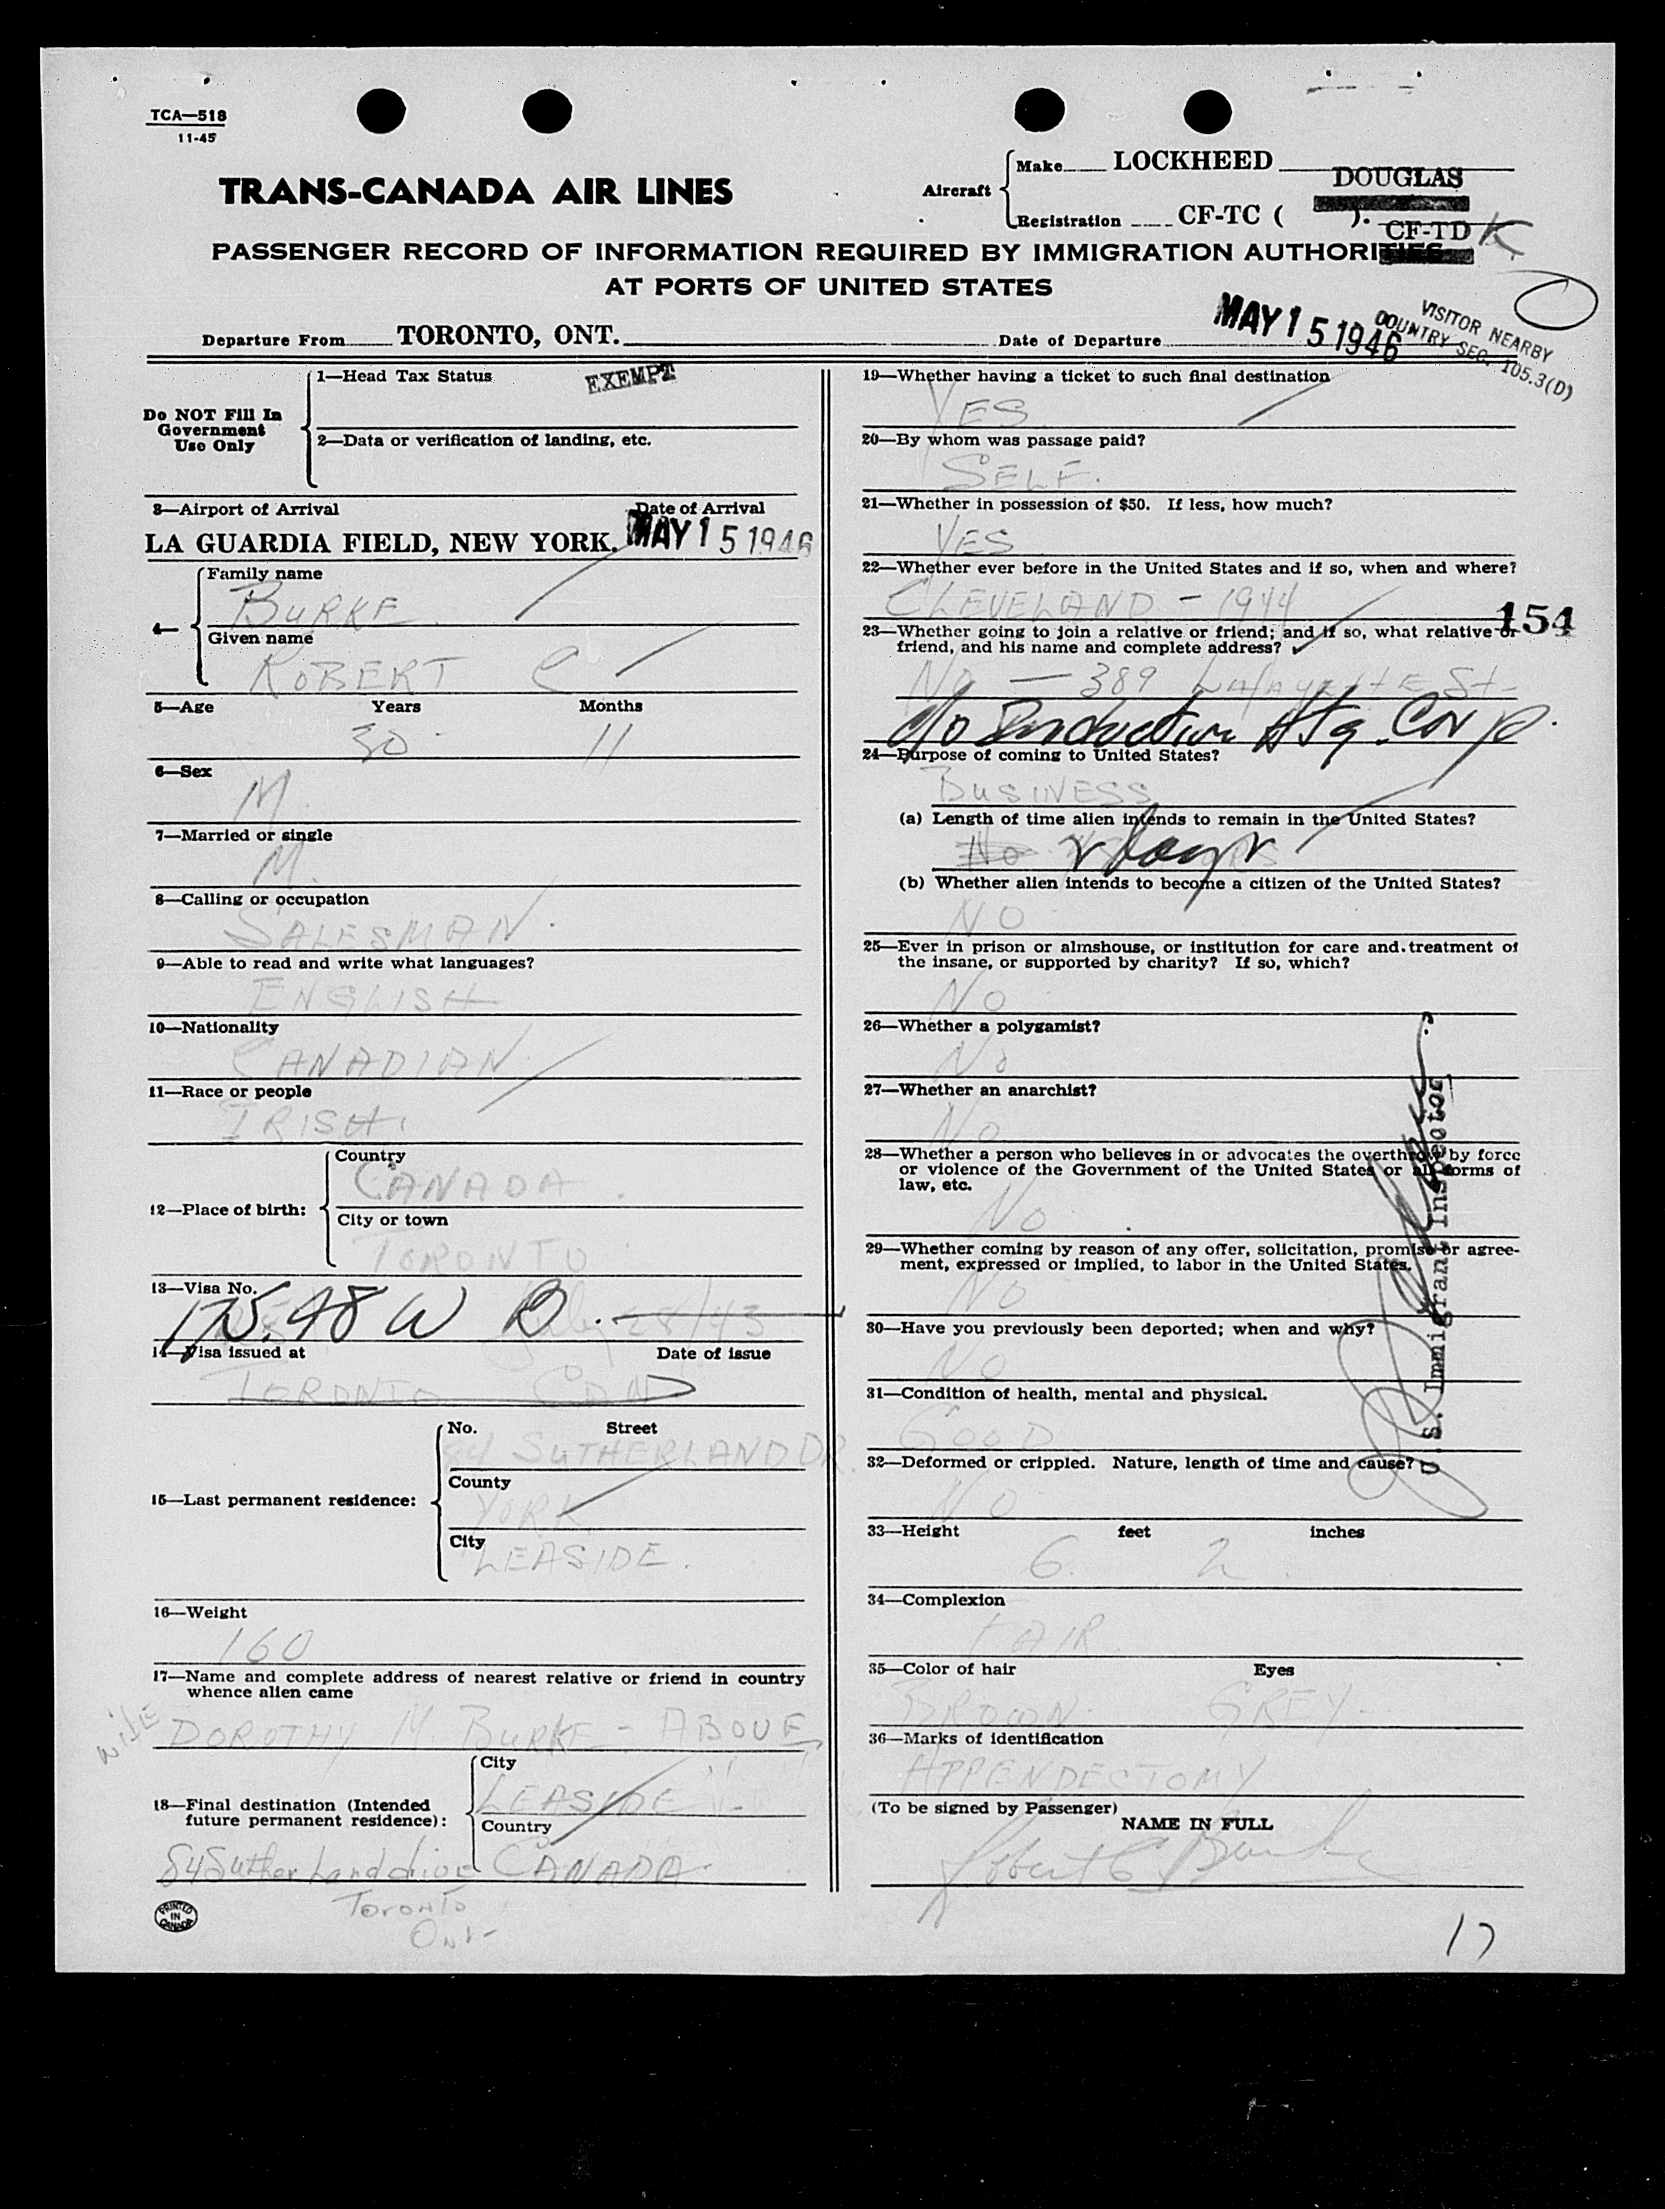 TCA—518
11-45
TRANS-CANADA AIR LINES
Aircraft
Make LOCKHEED
DOUGLAS
Registration CF-TC ( ).
CF-TD K
PASSENGER RECORD OF INFORMATION REQUIRED BY IMMIGRATION AUTHORITIES
AT PORTS OF UNITED STATES
Departure From TORONTO, ONT.
Date of Departure MAY 15 1946
VISITOR NEARBY
COUNTRY SEC. 105.3(D)
Do NOT Fill In
Government
Use Only
1—Head Tax Status EXEMPT
2—Data or verification of landing, etc.
3—Airport of Arrival Date of Arrival
LA GUARDIA FIELD, NEW YORK. MAY 15 1946
4—
Family name
BURKE
Given name
ROBERT C
5—Age Years Months
30 11
6—Sex
M.
7—Married or single
M.
8—Calling or occupation
SALESMAN.
9—Able to read and write what languages?
ENGLISH
10—Nationality
CANADIAN
11—Race or people
IRISH
12—Place of birth:
Country
CANADA.
City or town
TORONTO
13—Visa No.
14—Visa issued at Date of issue
TORONTO
15—Last permanent residence:
No. Street
84 SUTHERLAND DR.
County
YORK
City
LEASIDE.
16—Weight
160
17—Name and complete address of nearest relative or friend in country
whence alien came
wife
DOROTHY M. BURKE - ABOVE
18—Final destination (Intended
future permanent residence):
City
LEASIDE
Country
84 Sutherland drive CANADA.
Toronto
Ont-
PRINTED
IN
CANADA
19—Whether having a ticket to such final destination
YES
20—By whom was passage paid?
SELF.
21—Whether in possession of $50. If less, how much?
YES
22—Whether ever before in the United States and if so, when and where?
CLEVELAND - 1944
154
23—Whether going to join a relative or friend; and if so, what relative or
friend, and his name and complete address?
NO — 389 Lafayette St-
24—Purpose of coming to United States?
BUSINESS
(a) Length of time alien intends to remain in the United States?
days
(b) Whether alien intends to become a citizen of the United States?
NO
25—Ever in prison or almshouse, or institution for care and treatment of
the insane, or supported by charity? If so, which?
NO
26—Whether a polygamist?
NO
27—Whether an anarchist?
NO
28—Whether a person who believes in or advocates the overthrow by force
or violence of the Government of the United States or all forms of
law, etc.
NO
29—Whether coming by reason of any offer, solicitation, promise or agree-
ment, expressed or implied, to labor in the United States.
NO
30—Have you previously been deported; when and why?
NO
31—Condition of health, mental and physical.
GOOD
32—Deformed or crippled. Nature, length of time and cause?
NO
U.S. Immigrant Inspector
33—Height feet inches
6. 2.
34—Complexion
FAIR.
35—Color of hair Eyes
BROWN. GREY-
36—Marks of identification
APPENDECTOMY
(To be signed by Passenger)
NAME IN FULL
Robert C Burke
17